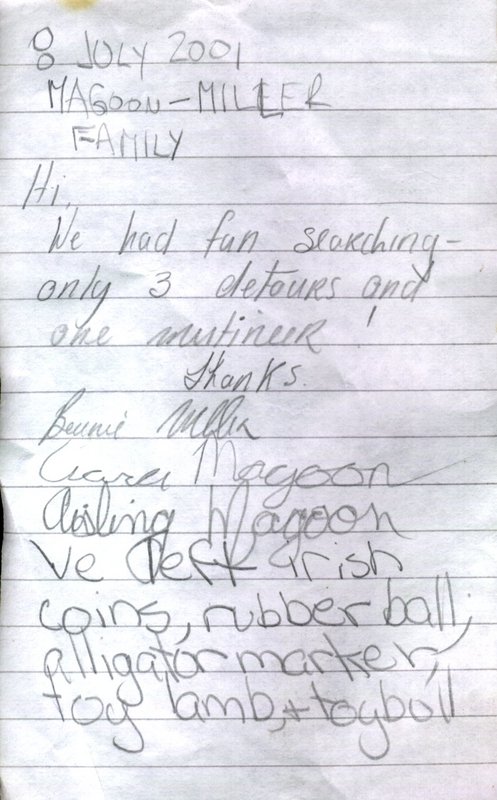 8 JULY 2001
MAGOON-MILLER
FAMILY
Hi,
We had fun searching-
only 3 detours and
one mutineer!
Thanks.
Bennie Miller
Ciara Magoon
Aisling Magoon
Ve left irish
coins, rubber ball,
alligator marker,
toy lamb, + toy bull